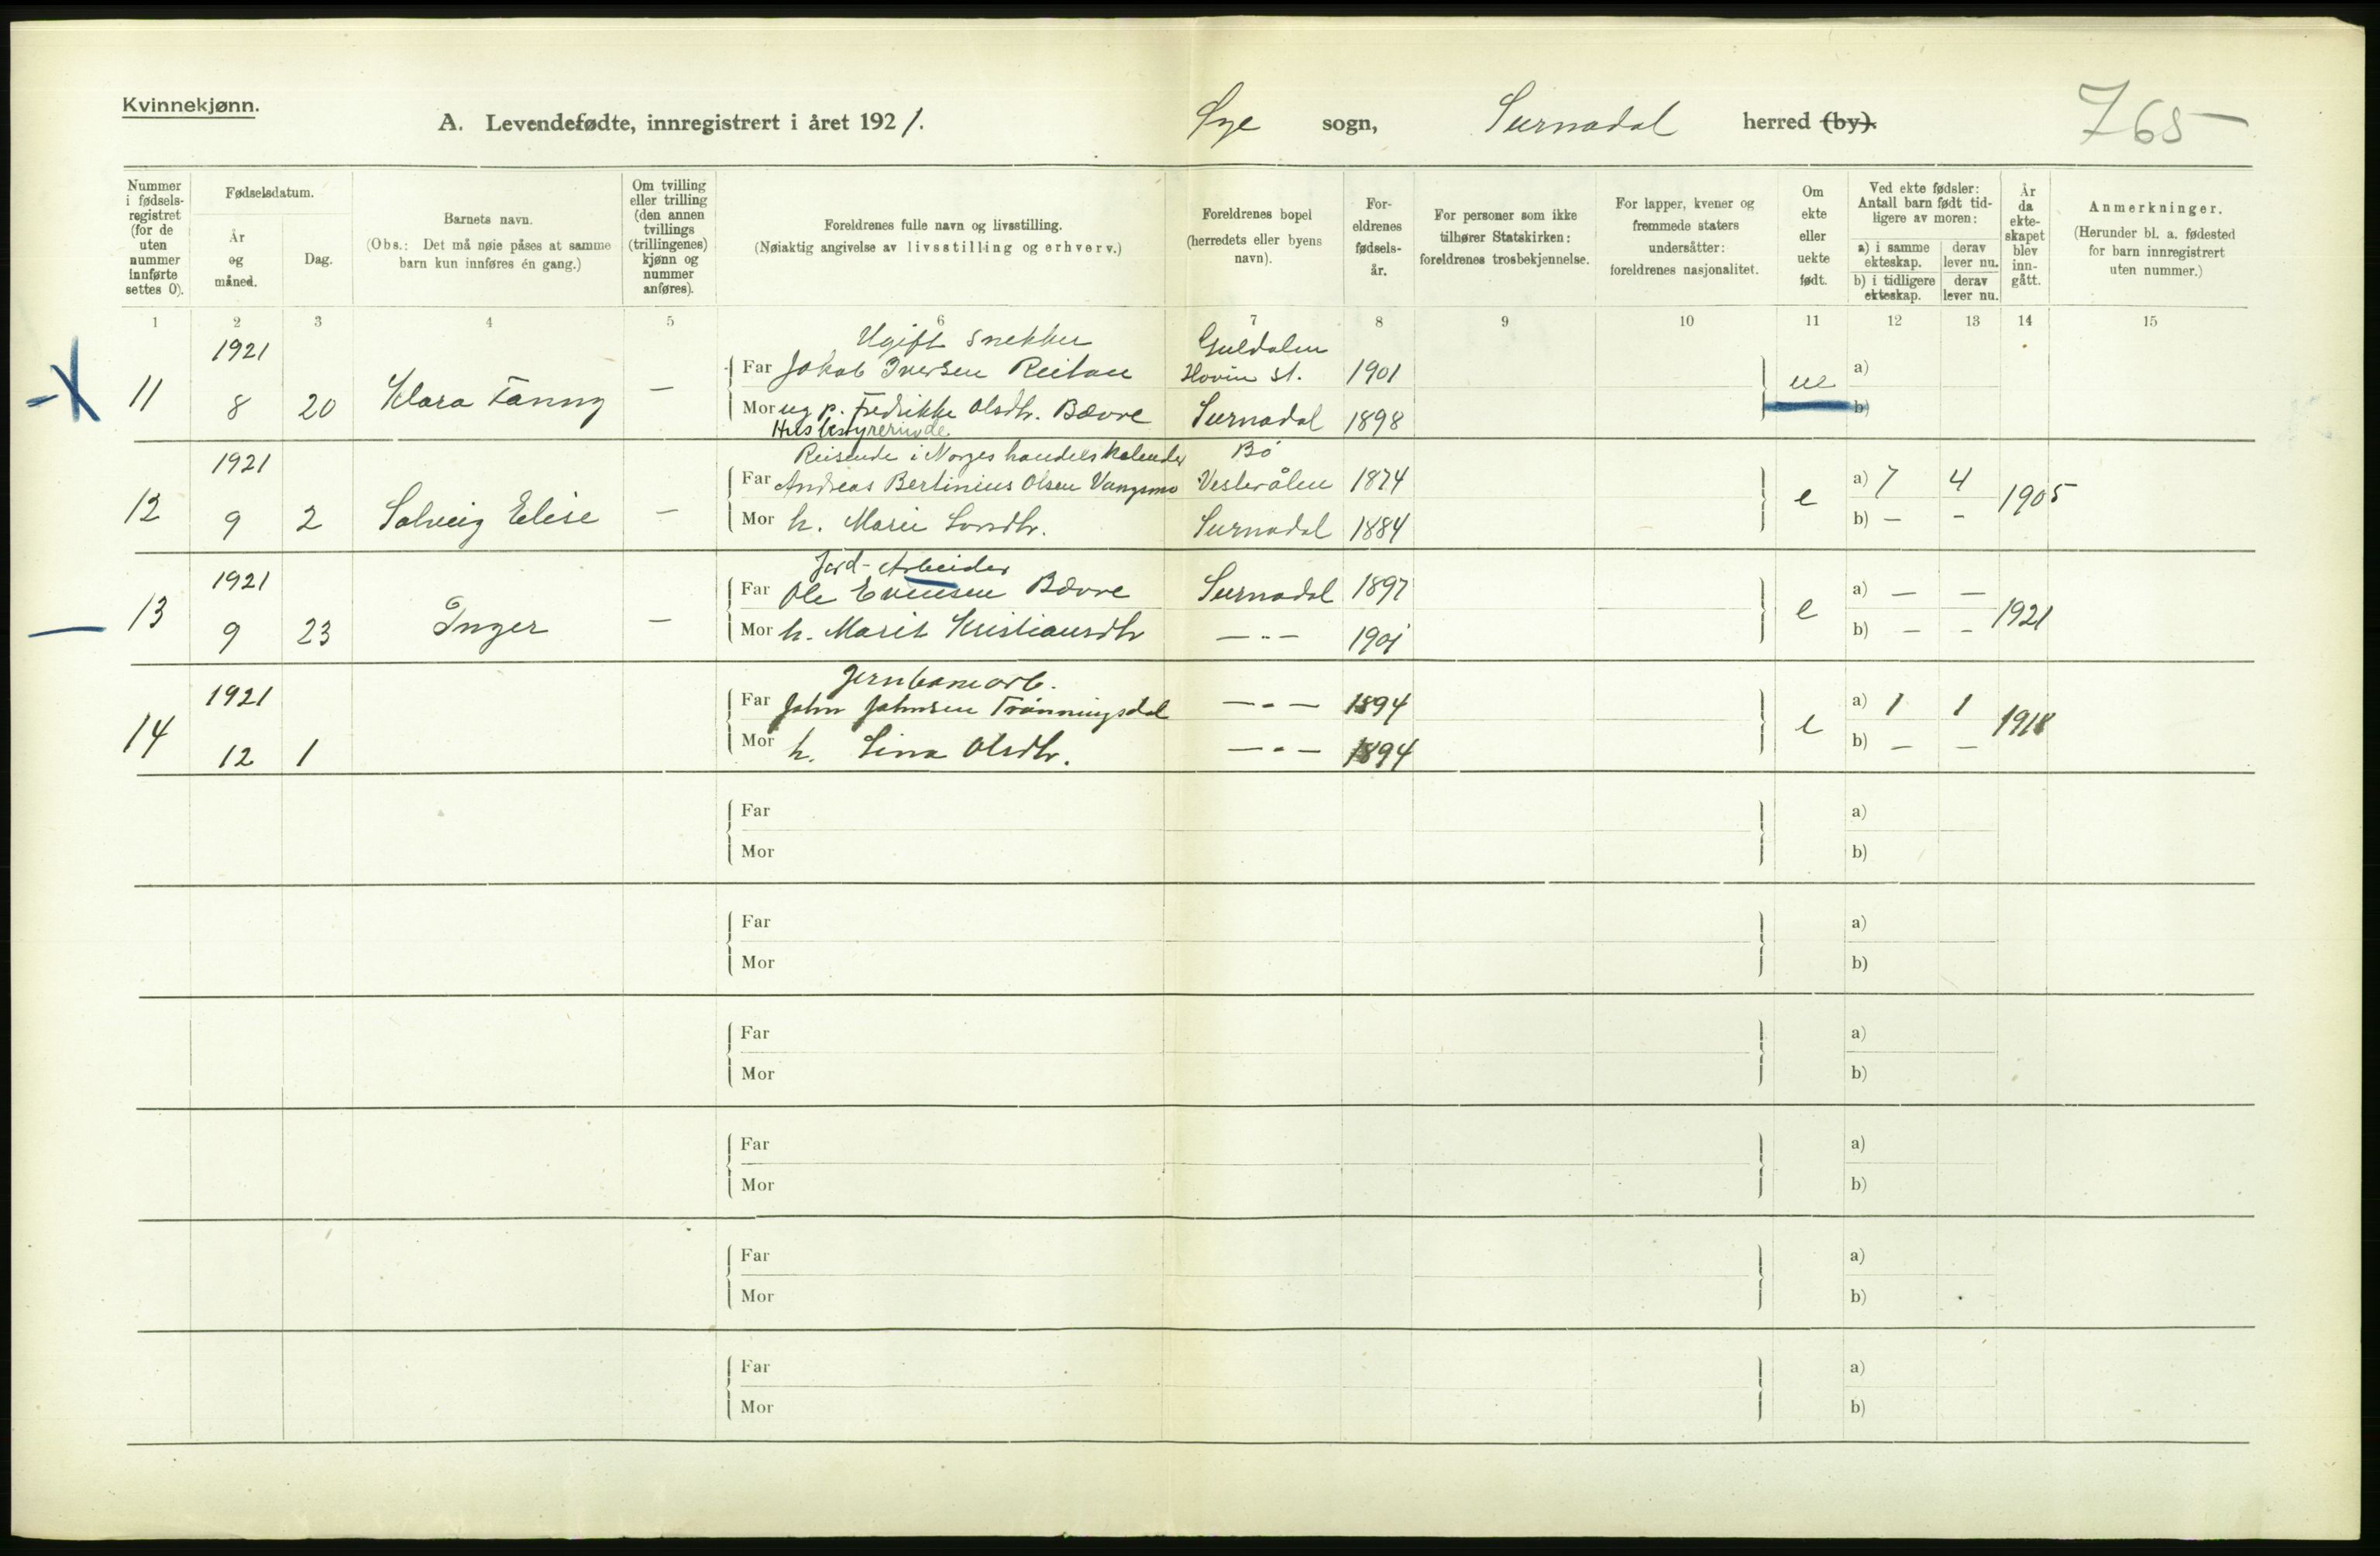 Kvinnekjønn.
A. Levendefødte, innregistrert i året 1921. Øye sogn, Surnadal herred (by). 765
Nummer i fødselsregistret (for de uten nummer innførte settes 0).
Fødselsdatum.
År og måned.
Dag.
Barnets navn.
(Obs.: Det må nøie påses at samme barn kun innføres én gang.)
Om tvilling eller trilling (den annen tvillings (trillingenes) kjønn og nummer anføres).
Foreldrenes fulle navn og livsstilling.
(Nøiaktig angivelse av livsstilling og erhverv.)
Foreldrenes bopel (herredets eller byens navn).
Foreldrenes fødselsår.
For personer som ikke tilhører Statskirken: foreldrenes trosbekjennelse.
For lapper, kvener og fremmede staters undersåtter: foreldrenes nasjonalitet.
Om ekte eller uekte født.
Ved ekte fødsler: Antall barn født tidligere av moren:
a) i samme ekteskap. derav lever nu.
b) i tidligere ekteskap. derav lever nu.
År da ekteskapet blev inngått.
Anmerkninger.
(Herunder bl. a. fødested for barn innregistrert uten nummer.)
1 2 3 4 5 6 7 8 9 10 11 12 13 14 15
1921 Ugift snekker Guldalen
Far Jakob Iversen Reitan Hovin st. 1901 a)
11 8 20 Klara Fanny — ue
Mor ug p. Fredrikke Olsdtr. Bævre Surnadal 1898 b)
Husbestyrerinde
1921 Reisende i Norges handelskalender Bö
Far Andreas Bertinius Olsen Vangsmo Vesterålen 1874 a) 7 4
12 9 2 Solveig Elise — e 1905
Mor h. Marie Larsdtr. Surnadal 1884 b) — —
1921 Jord-Arbeider
Far Ole Evensen Bævre Surnadal 1897 a) — —
13 9 23 Inger — e 1921
Mor h. Marit Kristiansdtr —"— 1901 b) — —
1921 Jernbanearb.
Far John Johnsen Trönningsdal —"— 1894 a) 1 1
14 12 1 e 1918
Mor h. Lina Olsdtr. —"— 1894 b) — —
Far a)
Mor b)
Far a)
Mor b)
Far a)
Mor b)
Far a)
Mor b)
Far a)
Mor b)
Far a)
Mor b)